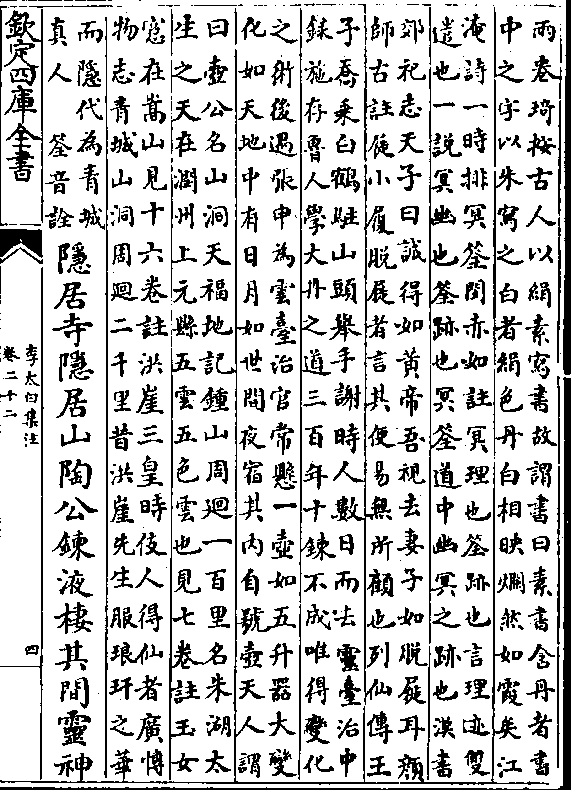 雨卷琦按古人以絹素寫書故謂書曰素書含丹者書
中之字以朱寫之白者絹色丹白相映爛然如霞矣江
淹詩一時排冥筌閔赤如註冥理也筌跡也言理迹雙
遣也一説冥幽也筌跡也冥筌道中幽冥之跡也漢書
郊祀志天子曰誠得如黃帝吾視去妻子如脱屣耳顔
師古註屣小履脱屣者言其便易無所顧也列仙傳王
子喬乘白鶴駐山頭舉手謝時人數日而去靈臺治中
録施存魯人學大丹之道三百年十鍊不成唯得變化
之術後遇張申為雲臺治官常懸一壺如五升器大變
化如天地中有日月如世間夜宿其内自號壺天人謂
曰壺公名山洞天福地記鍾山周廻一百里名朱湖太
生之天在潤州上元縣五雲五色雲也見七卷註玉女
窓在嵩山見十六卷註洪崖三皇時伎人得仙者廣博
物志青城山洞周廻二千里昔洪崖先生服琅玕之華
而隱代為青城
真人 筌音詮
隱居寺隱居山陶公鍊液棲其間靈神
欽定四庫全書
李太白集注
卷二十二
四